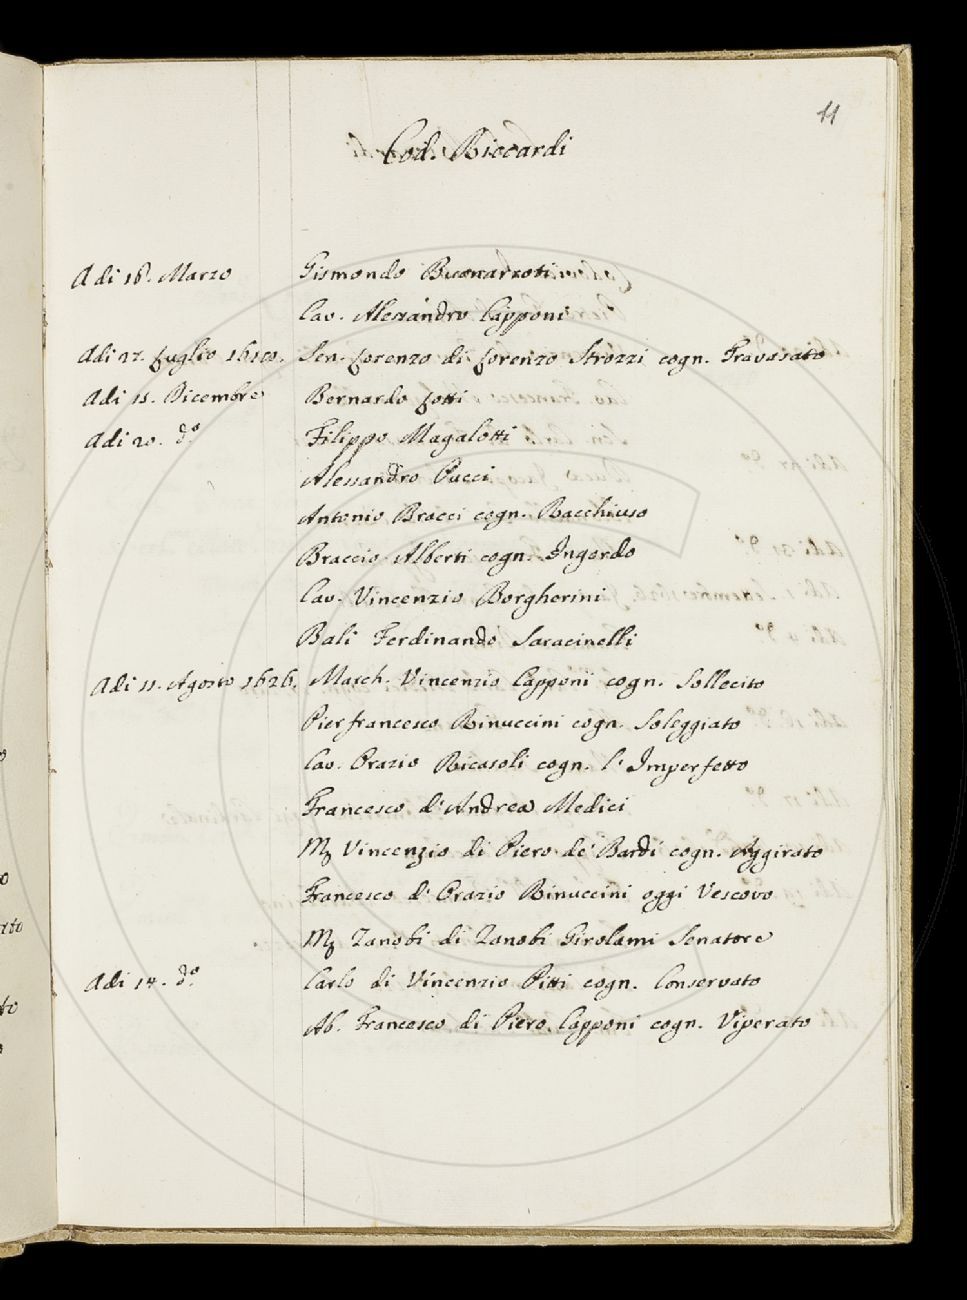 11
Cod. Riccardi
Adi 16. Marzo Gismondo Buonarroti
Cav. Alessandro Capponi
Adi 27. Luglio Sen. Lorenzo di Lorenzo Strozzi cogn. Travasato
Adi 15. Dicembre Bernardo Lotti
Adi 20. do Filippo Magalotti
Alessandro Pucci
Antonio Bracci cogn. Bacchiuso
Braccio Alberti cogn. Ingordo
Cav. Vincenzio Borgherini
Balì Ferdinando Saracinelli
Adi 11. Agosto 1626. March. Vincenzio Capponi cogn. Sollecito
Pierfrancesco Rinuccini cogn. Soleggiato
Cav. Orazio Ricasoli cogn. l' Imperfetto
Francesco d' Andrea Medici
Mr Vincenzio di Piero de' Bardi cogn. Aggirato
Francesco d' Orazio Rinuccini oggi Vescovo
Mr Zanobi di Zanobi Girolami Senatore
Adi 14. do Carlo di Vincenzio Pitti cogn. Conservato
Ab. Francesco di Piero Capponi cogn. Viperato